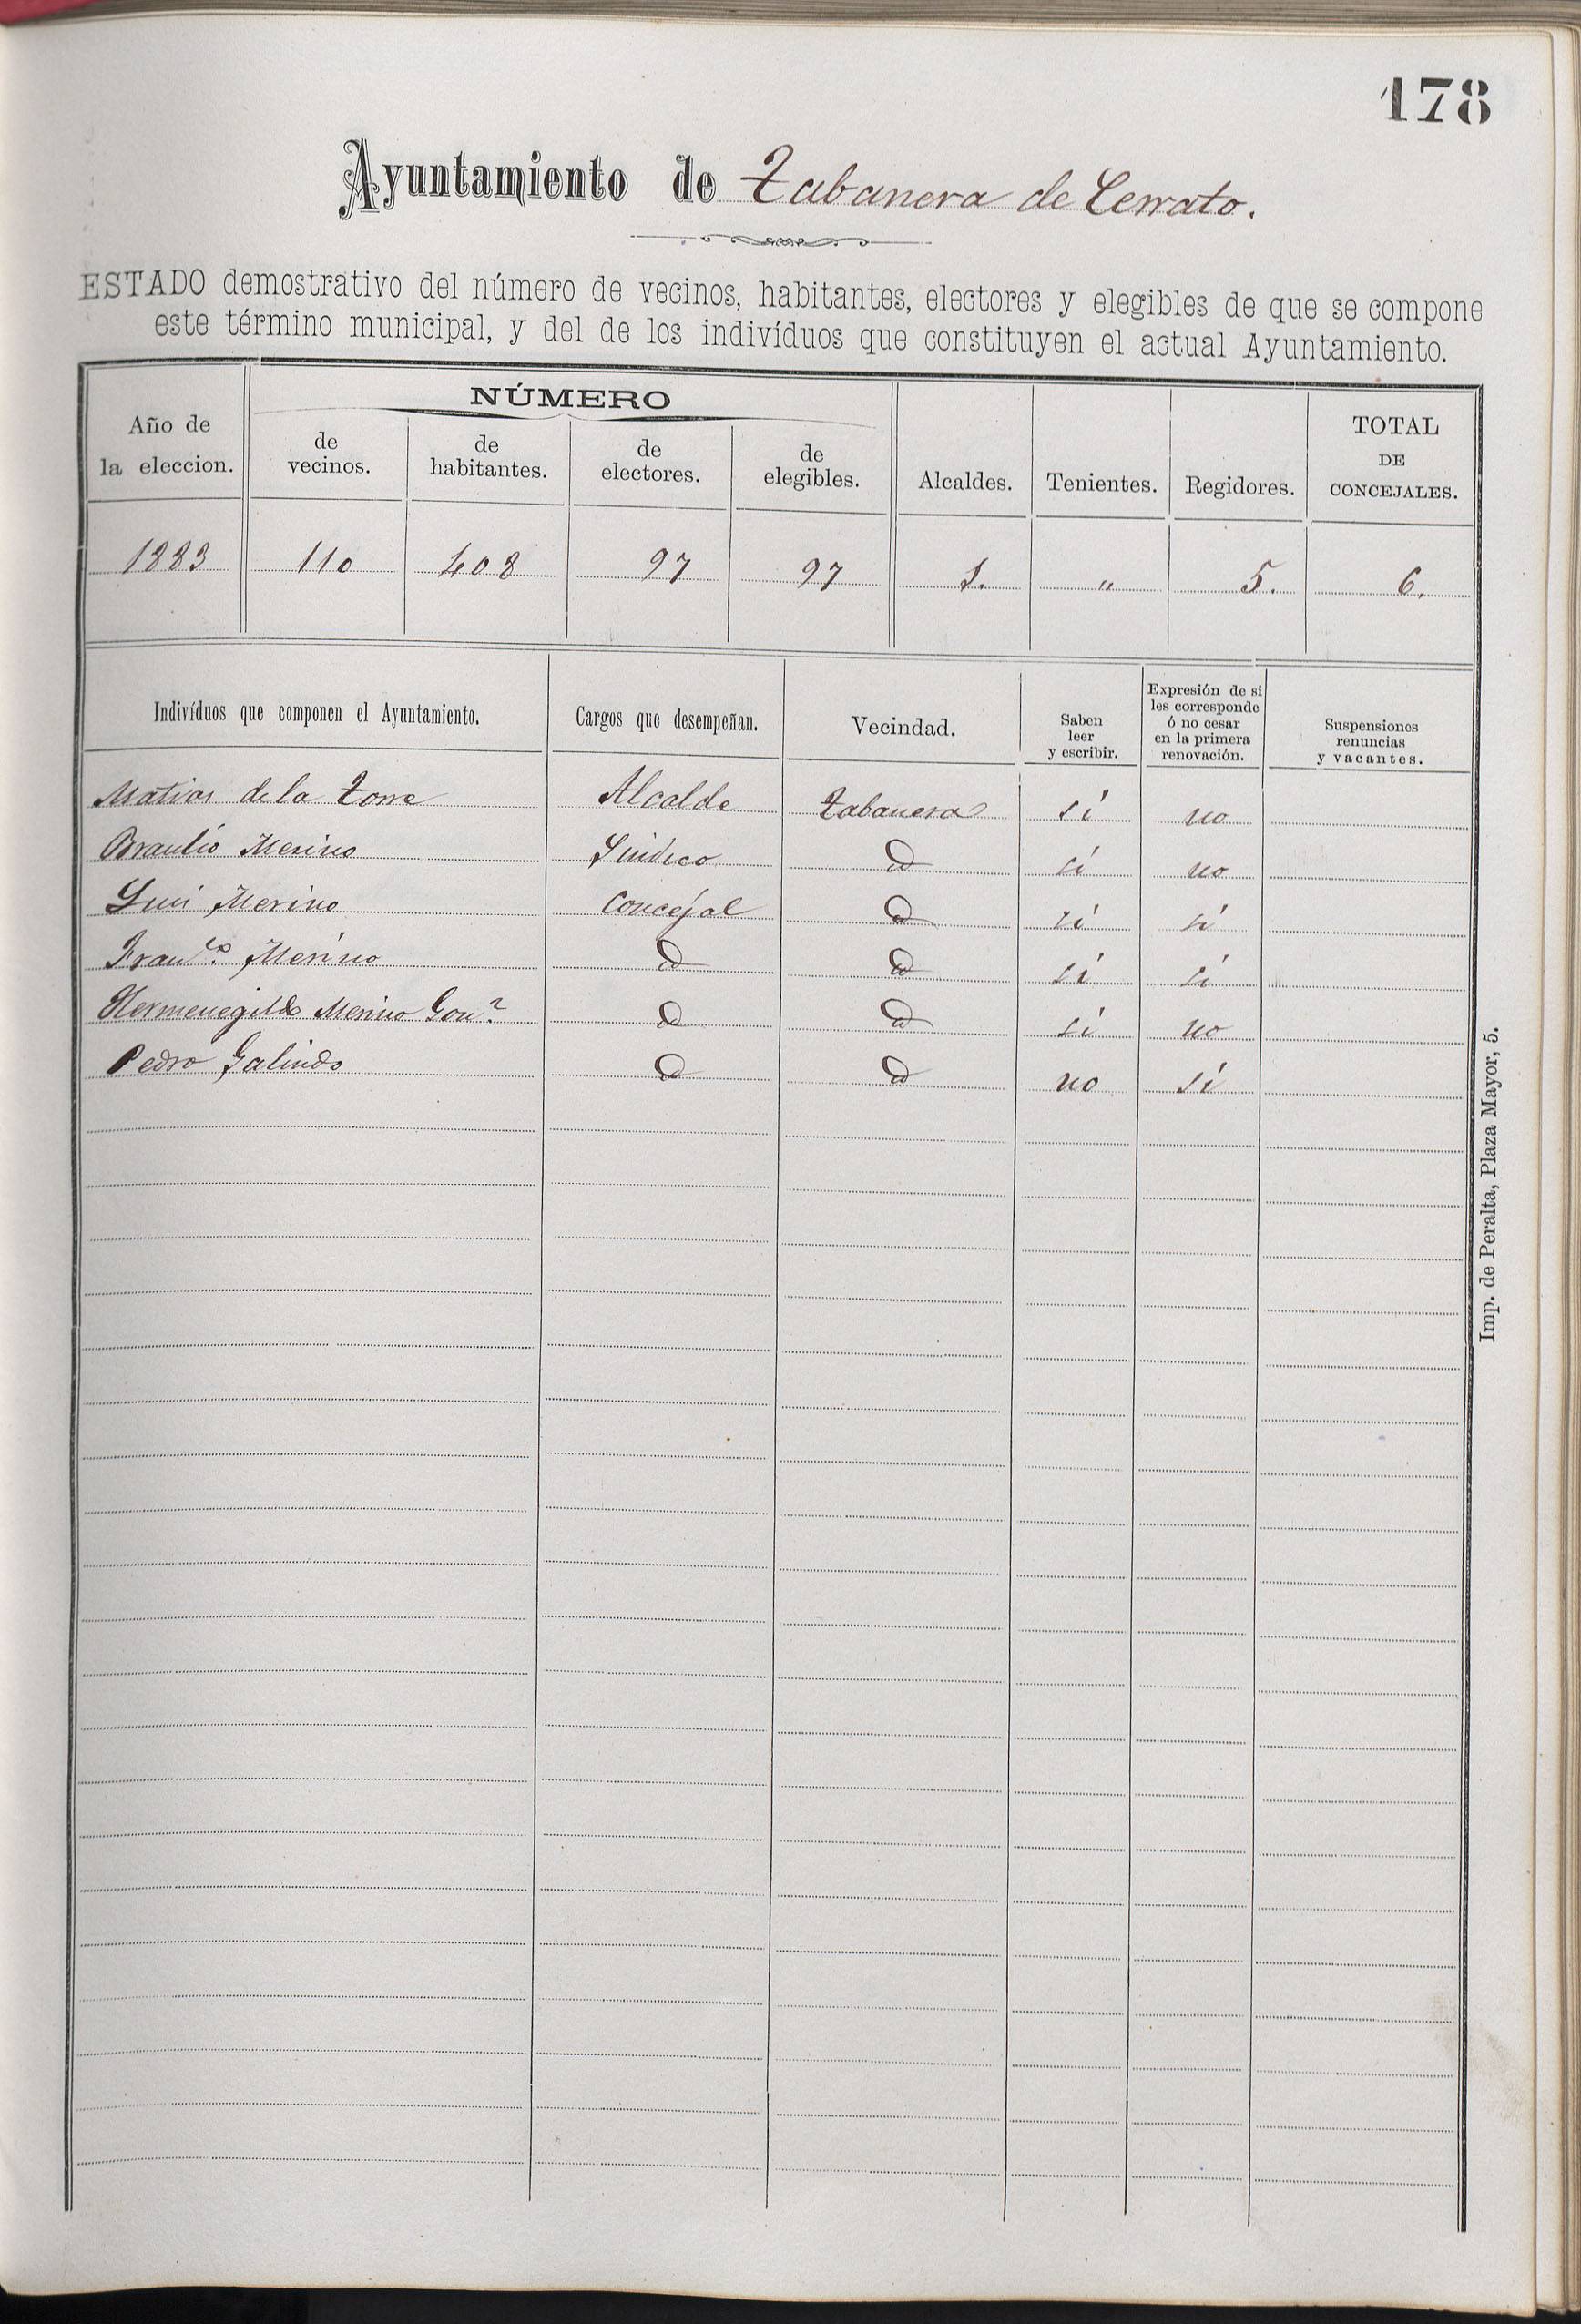 178
Ayuntamiento de Tabanera de Cerrato.
ESTADO demostrativo del número de vecinos, habitantes, electores y elegibles de que se compone
este término municipal, y del de los indivíduos que constituyen el actual Ayuntamiento.
Año de la eleccion. NÚMERO de vecinos. de habitantes. de electores. de elegibles. Alcaldes. Tenientes. Regidores. TOTAL DE CONCEJALES.
1883 110 408 97 97 1. " 5. 6.
Indivíduos que componen el Ayuntamiento. Cargos que desempeñan. Vecindad. Saben leer y escribir. Expresión de si les corresponde ó no cesar en la primera renovación. Suspensiones renuncias y vacantes.
Matias de la Torre Alcalde Tabanera sí no
Braulio Merino Sindico id sí no
Luis Merino Concejal id sí sí
Franco. Merino id id sí sí
Hermenegildo Merino Gonz id id sí no
Pedro Galindo id id no sí
Imp. de Peralta, Plaza Mayor, 5.